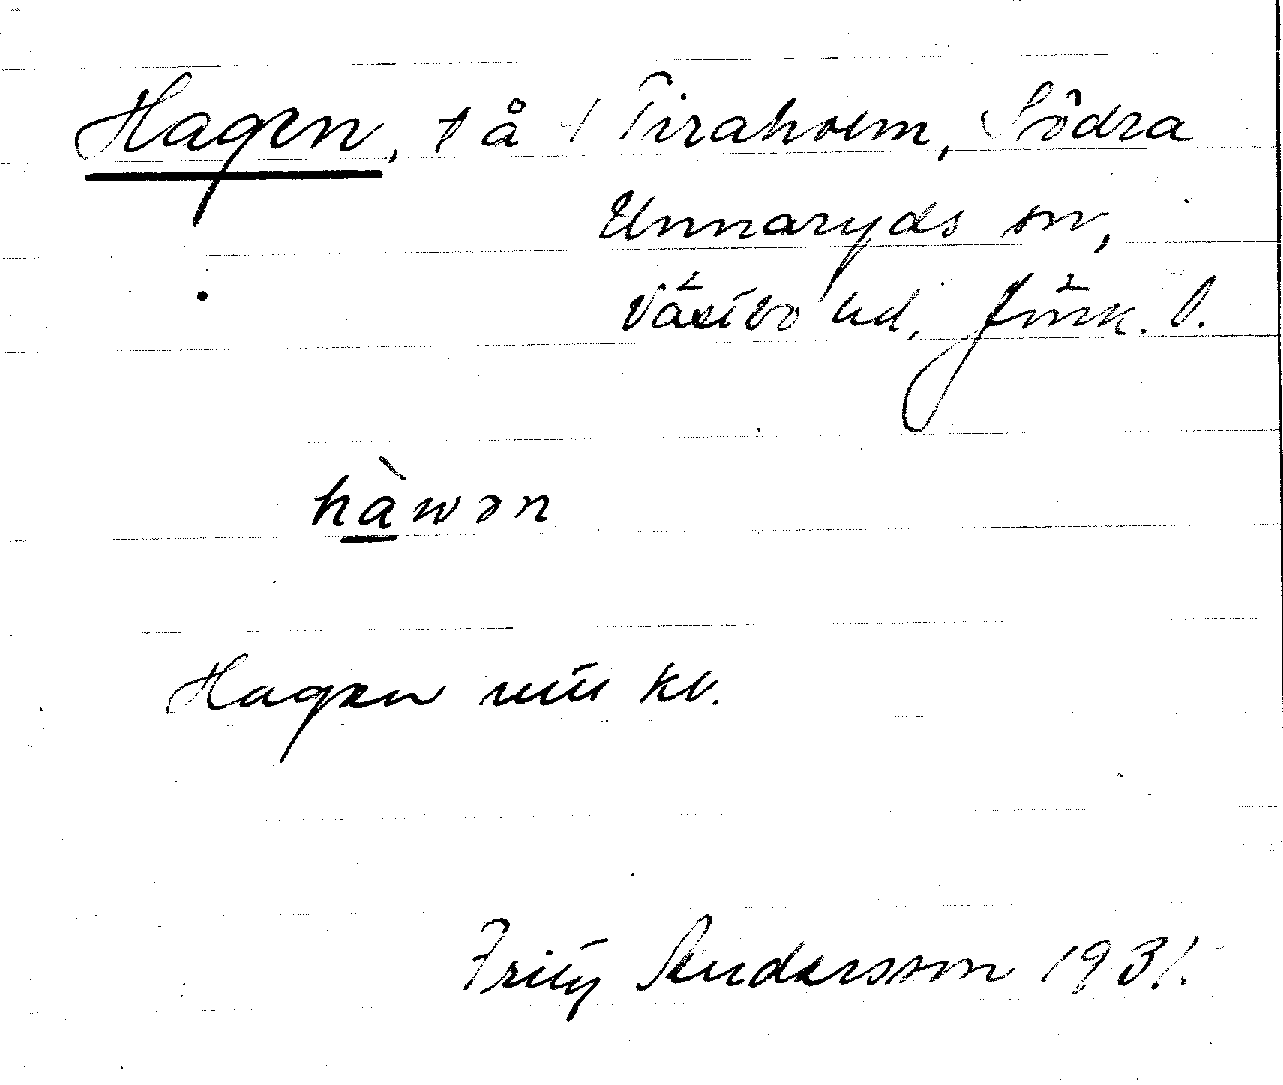 Hagen, t å f Tiraholm, Södra
Unnaryds sn,
Västbo hd, Jönk. l.
hàwən
Hagen utt. kv.
Fritz Andersson 1931.